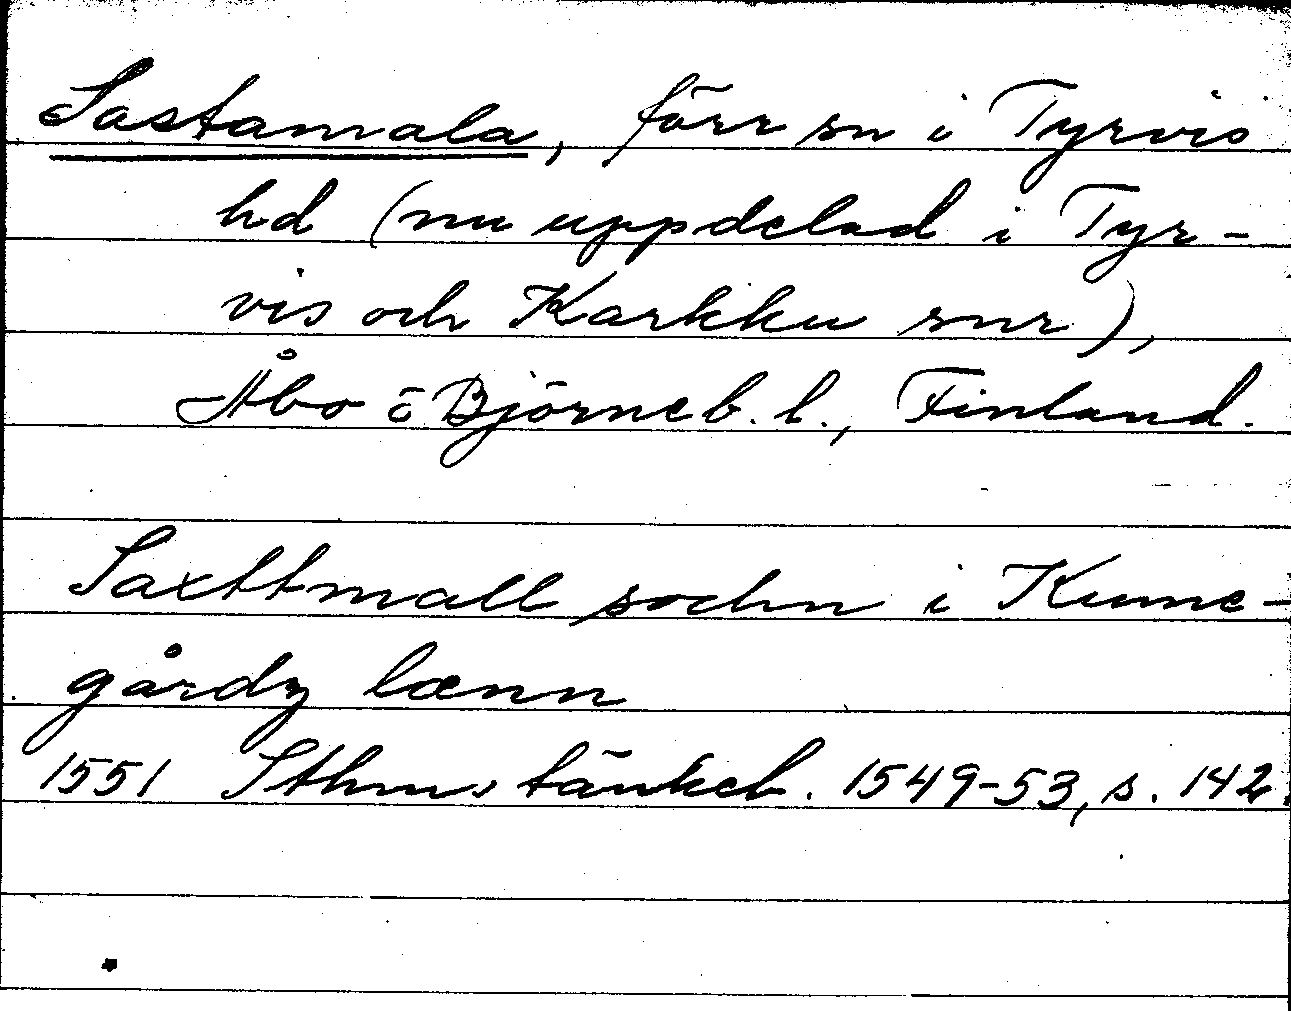 Sastamala, förr sn i Tyrvis
hd (nu uppdelad i Tyr-
vis och Karkku snr),
Åbo o Björneb. l., Finland.
Saxttmall sochn i Kume-
gårdz lænn
1551 Sthms tänkeb. 1549-53, s. 142.